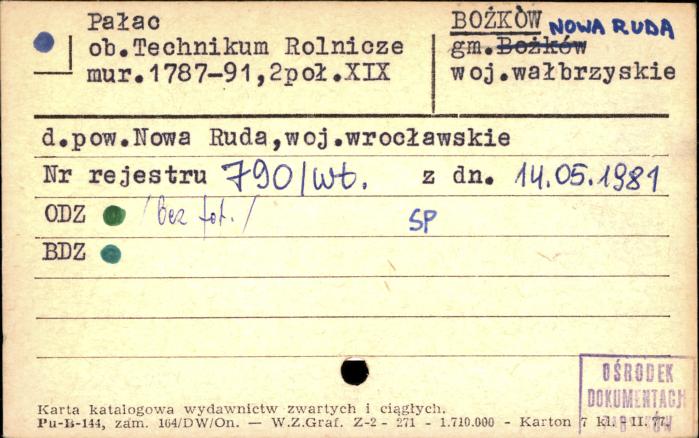 Pałac
ob.Technikum Rolnicze
mur.1787-91,2poł.XIX
BOŻKÓW NOWA RUDA
gm.Bożków
woj.wałbrzyskie
d.pow.Nowa Ruda,woj.wrocławskie
Nr rejestru 790/Wł. z dn. 14.05.1981
ODZ /bez fot./ SP
BDZ
OŚRODEK
DOKUMENTACJI
Karta katalogowa wydawnictw zwartych i ciągłych.
Pu-B-144, zam. 164/DW/On. — W.Z.Graf. Z-2 - 271 - 1.710.000 - Karton 7 kl. II. 77.